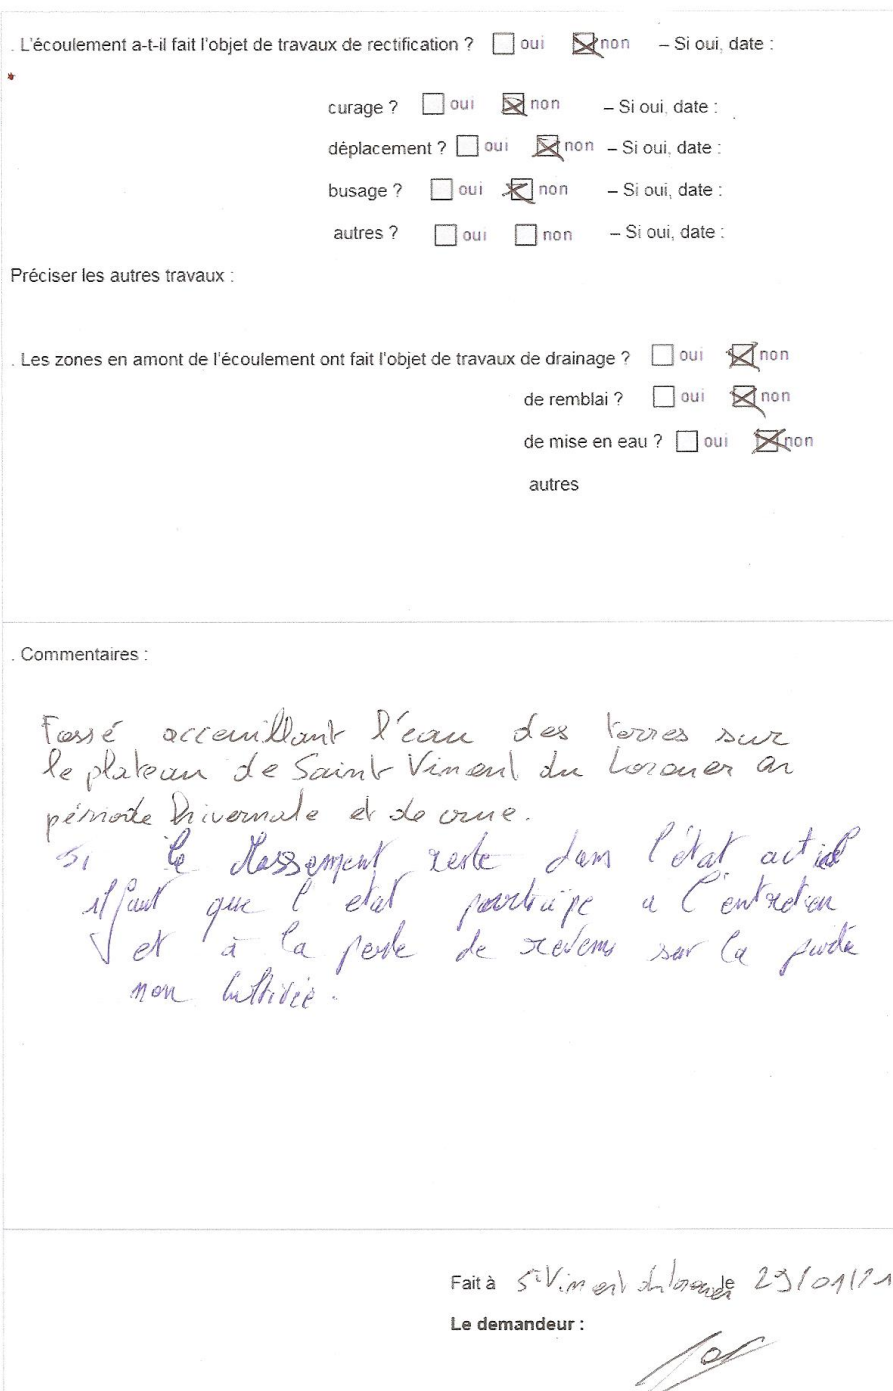 . L'écoulement a-t-il fait l'objet de travaux de rectification ? oui non – Si oui, date :
curage ? oui non – Si oui, date :
déplacement ? oui non – Si oui, date :
busage ? oui non – Si oui, date :
autres ? oui non – Si oui, date :
Préciser les autres travaux :
. Les zones en amont de l'écoulement ont fait l'objet de travaux de drainage ? oui non
de remblai ? oui non
de mise en eau ? oui non
autres
. Commentaires :
Fossé acceuillant l'eau des terres sur
le plateau de Saint Vincent du Lorouer en
période hivernale et de crue.
Si le classement reste dans l'état actuel
il faut que l'etat participe a l'entretien
et à la perte de revenu sur la partie
non cultivée.
Fait à St Vincent du lorouer le 29/01/21
Le demandeur :